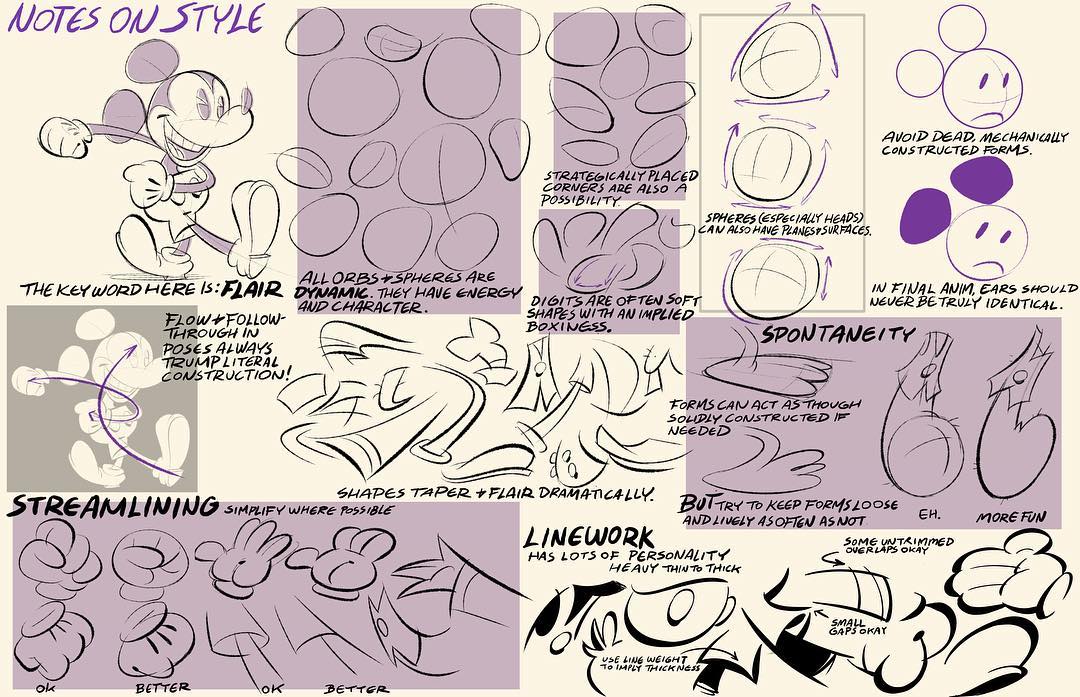 NOTES ON STYLE
THE KEY WORD HERE IS: FLAIR
ALL ORBS + SPHERES ARE
DYNAMIC. THEY HAVE ENERGY
AND CHARACTER.
STRATEGICALLY PLACED
CORNERS ARE ALSO A
POSSIBILITY.
DIGITS ARE OFTEN SOFT
SHAPES WITH AN IMPLIED
BOXINESS.
SPHERES (ESPECIALLY HEADS)
CAN ALSO HAVE PLANES + SURFACES.
AVOID DEAD, MECHANICALLY
CONSTRUCTED FORMS.
IN FINAL ANIM, EARS SHOULD
NEVER BE TRULY IDENTICAL.
FLOW + FOLLOW-
THROUGH IN
POSES ALWAYS
TRUMP LITERAL
CONSTRUCTION!
SHAPES TAPER + FLAIR DRAMATICALLY.
SPONTANEITY
FORMS CAN ACT AS THOUGH
SOLIDLY CONSTRUCTED IF
NEEDED
BUT TRY TO KEEP FORMS LOOSE
AND LIVELY AS OFTEN AS NOT
EH.
MORE FUN
STREAMLINING SIMPLIFY WHERE POSSIBLE
OK
BETTER
OK
BETTER
LINEWORK
HAS LOTS OF PERSONALITY
HEAVY THIN TO THICK
SOME UNTRIMMED
OVERLAPS OKAY
SMALL
GAPS OKAY
USE LINE WEIGHT
TO IMPLY THICKNESS